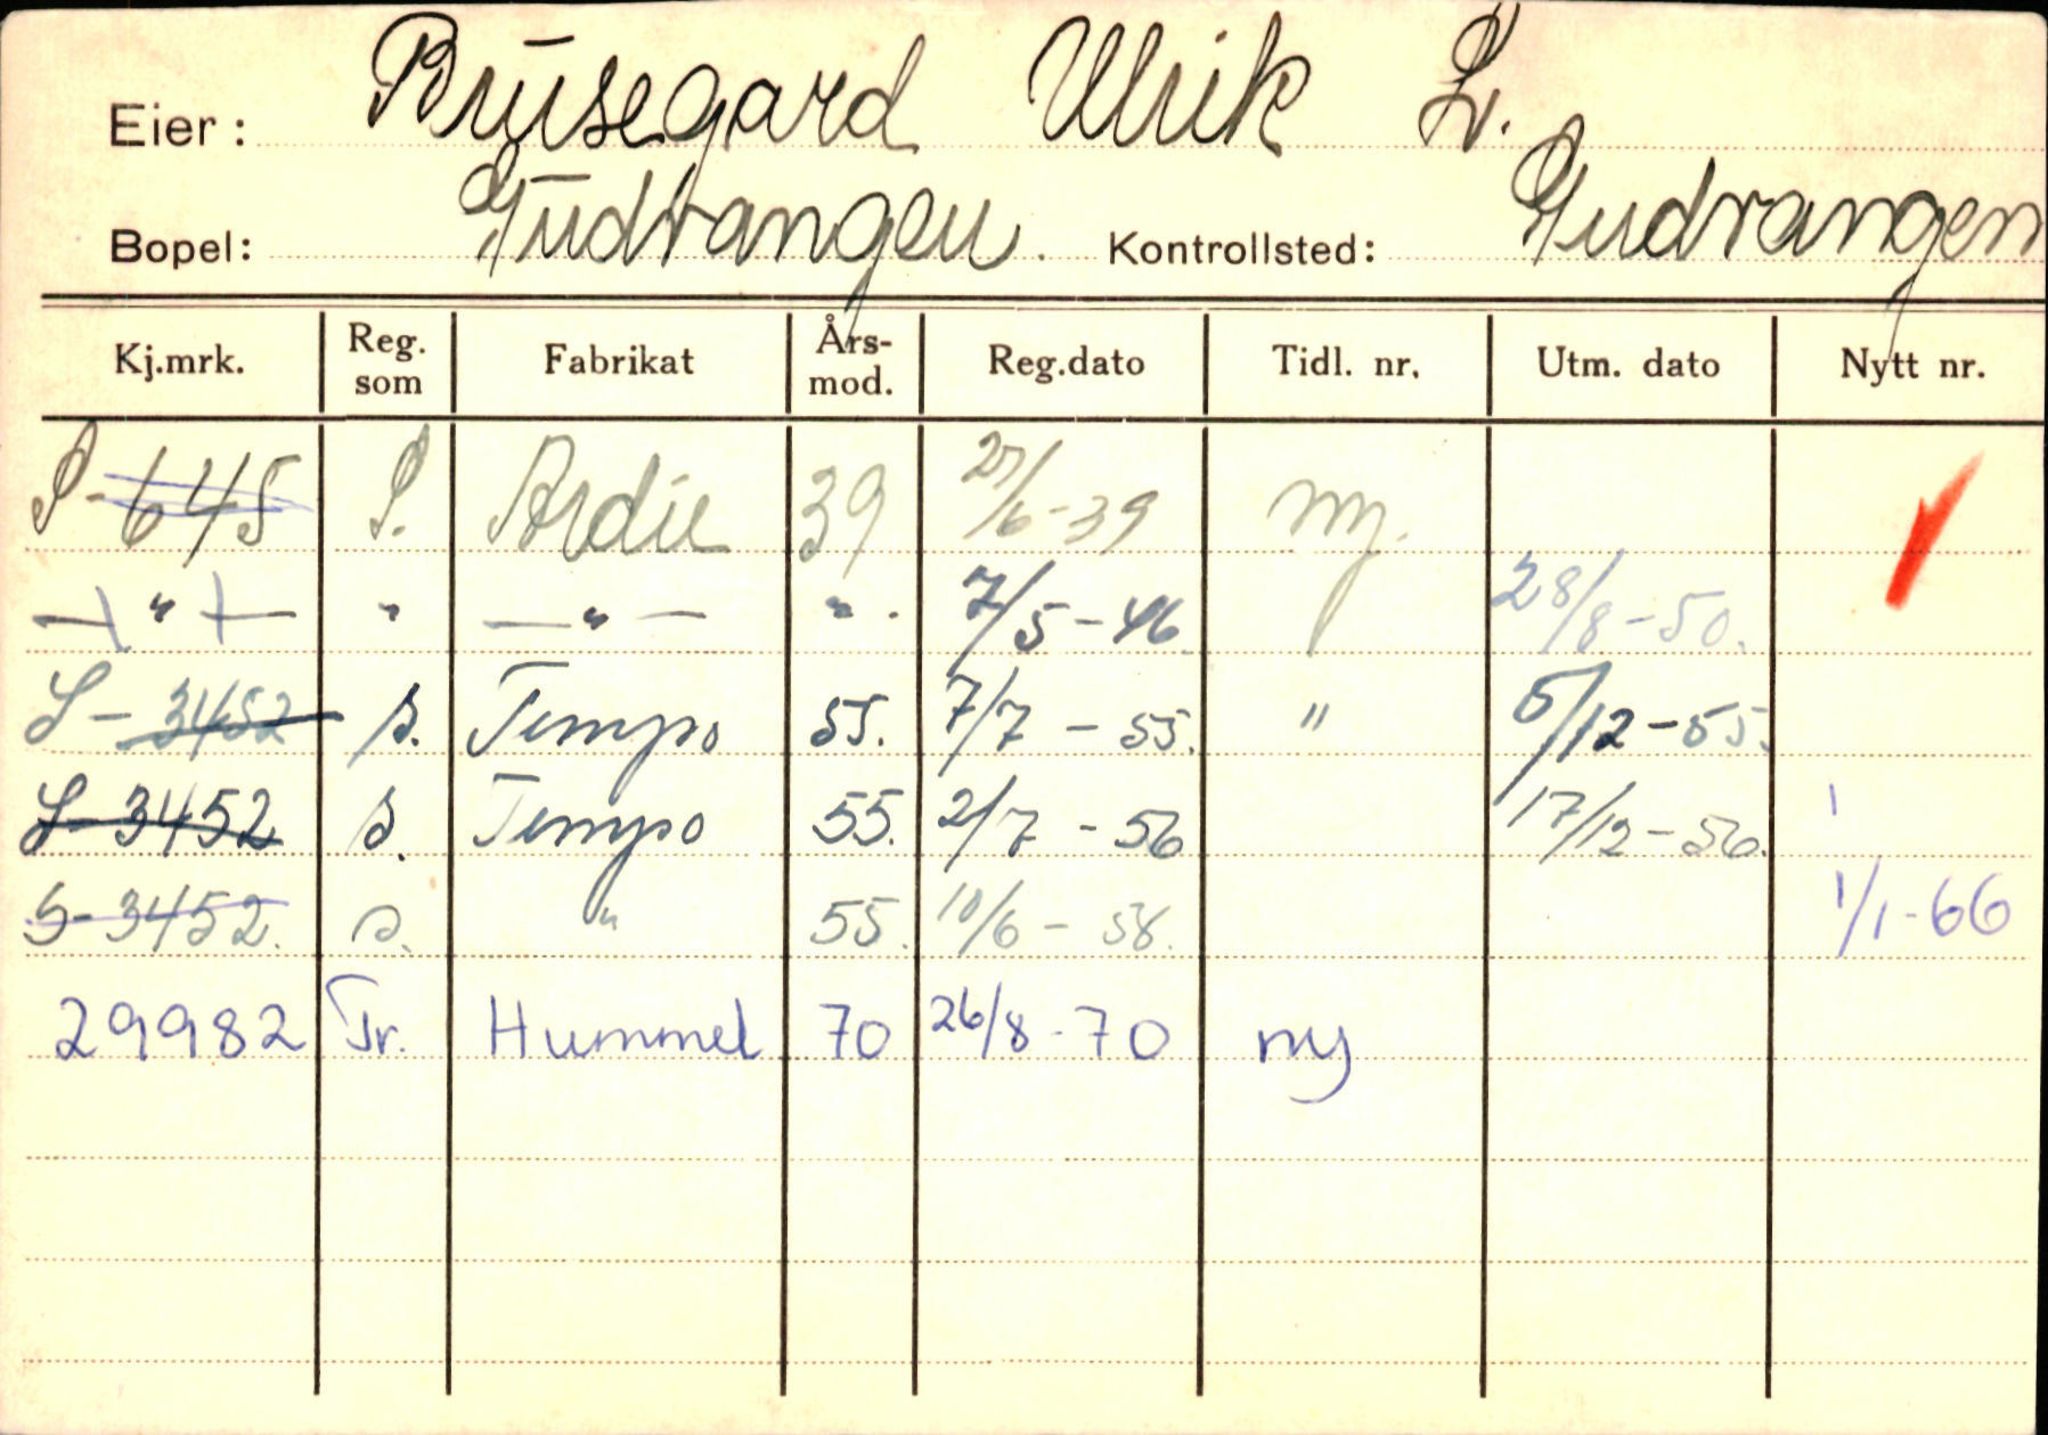 Eier: Brusegard Ulrik L.
Bopel: Gudvangen. Kontrollsted: Gudvangen
Kj.mrk. Reg. som Fabrikat Års-mod. Reg.dato Tidl. nr. Utm. dato Nytt nr.
S-645 S. Ardie 39 27/6-39 ny.
— " — " — " — " . 7/5-46 28/8-50.
S-3452 s. Tempo 55. 7/7-55. " 5/12-55.
S-3452 s. Tempo 55. 2/7-56 17/12-56.
S-3452. s. " 55. 10/6-58. 1/1-66
29982 Tr. Hummel 70 26/8-70 ny